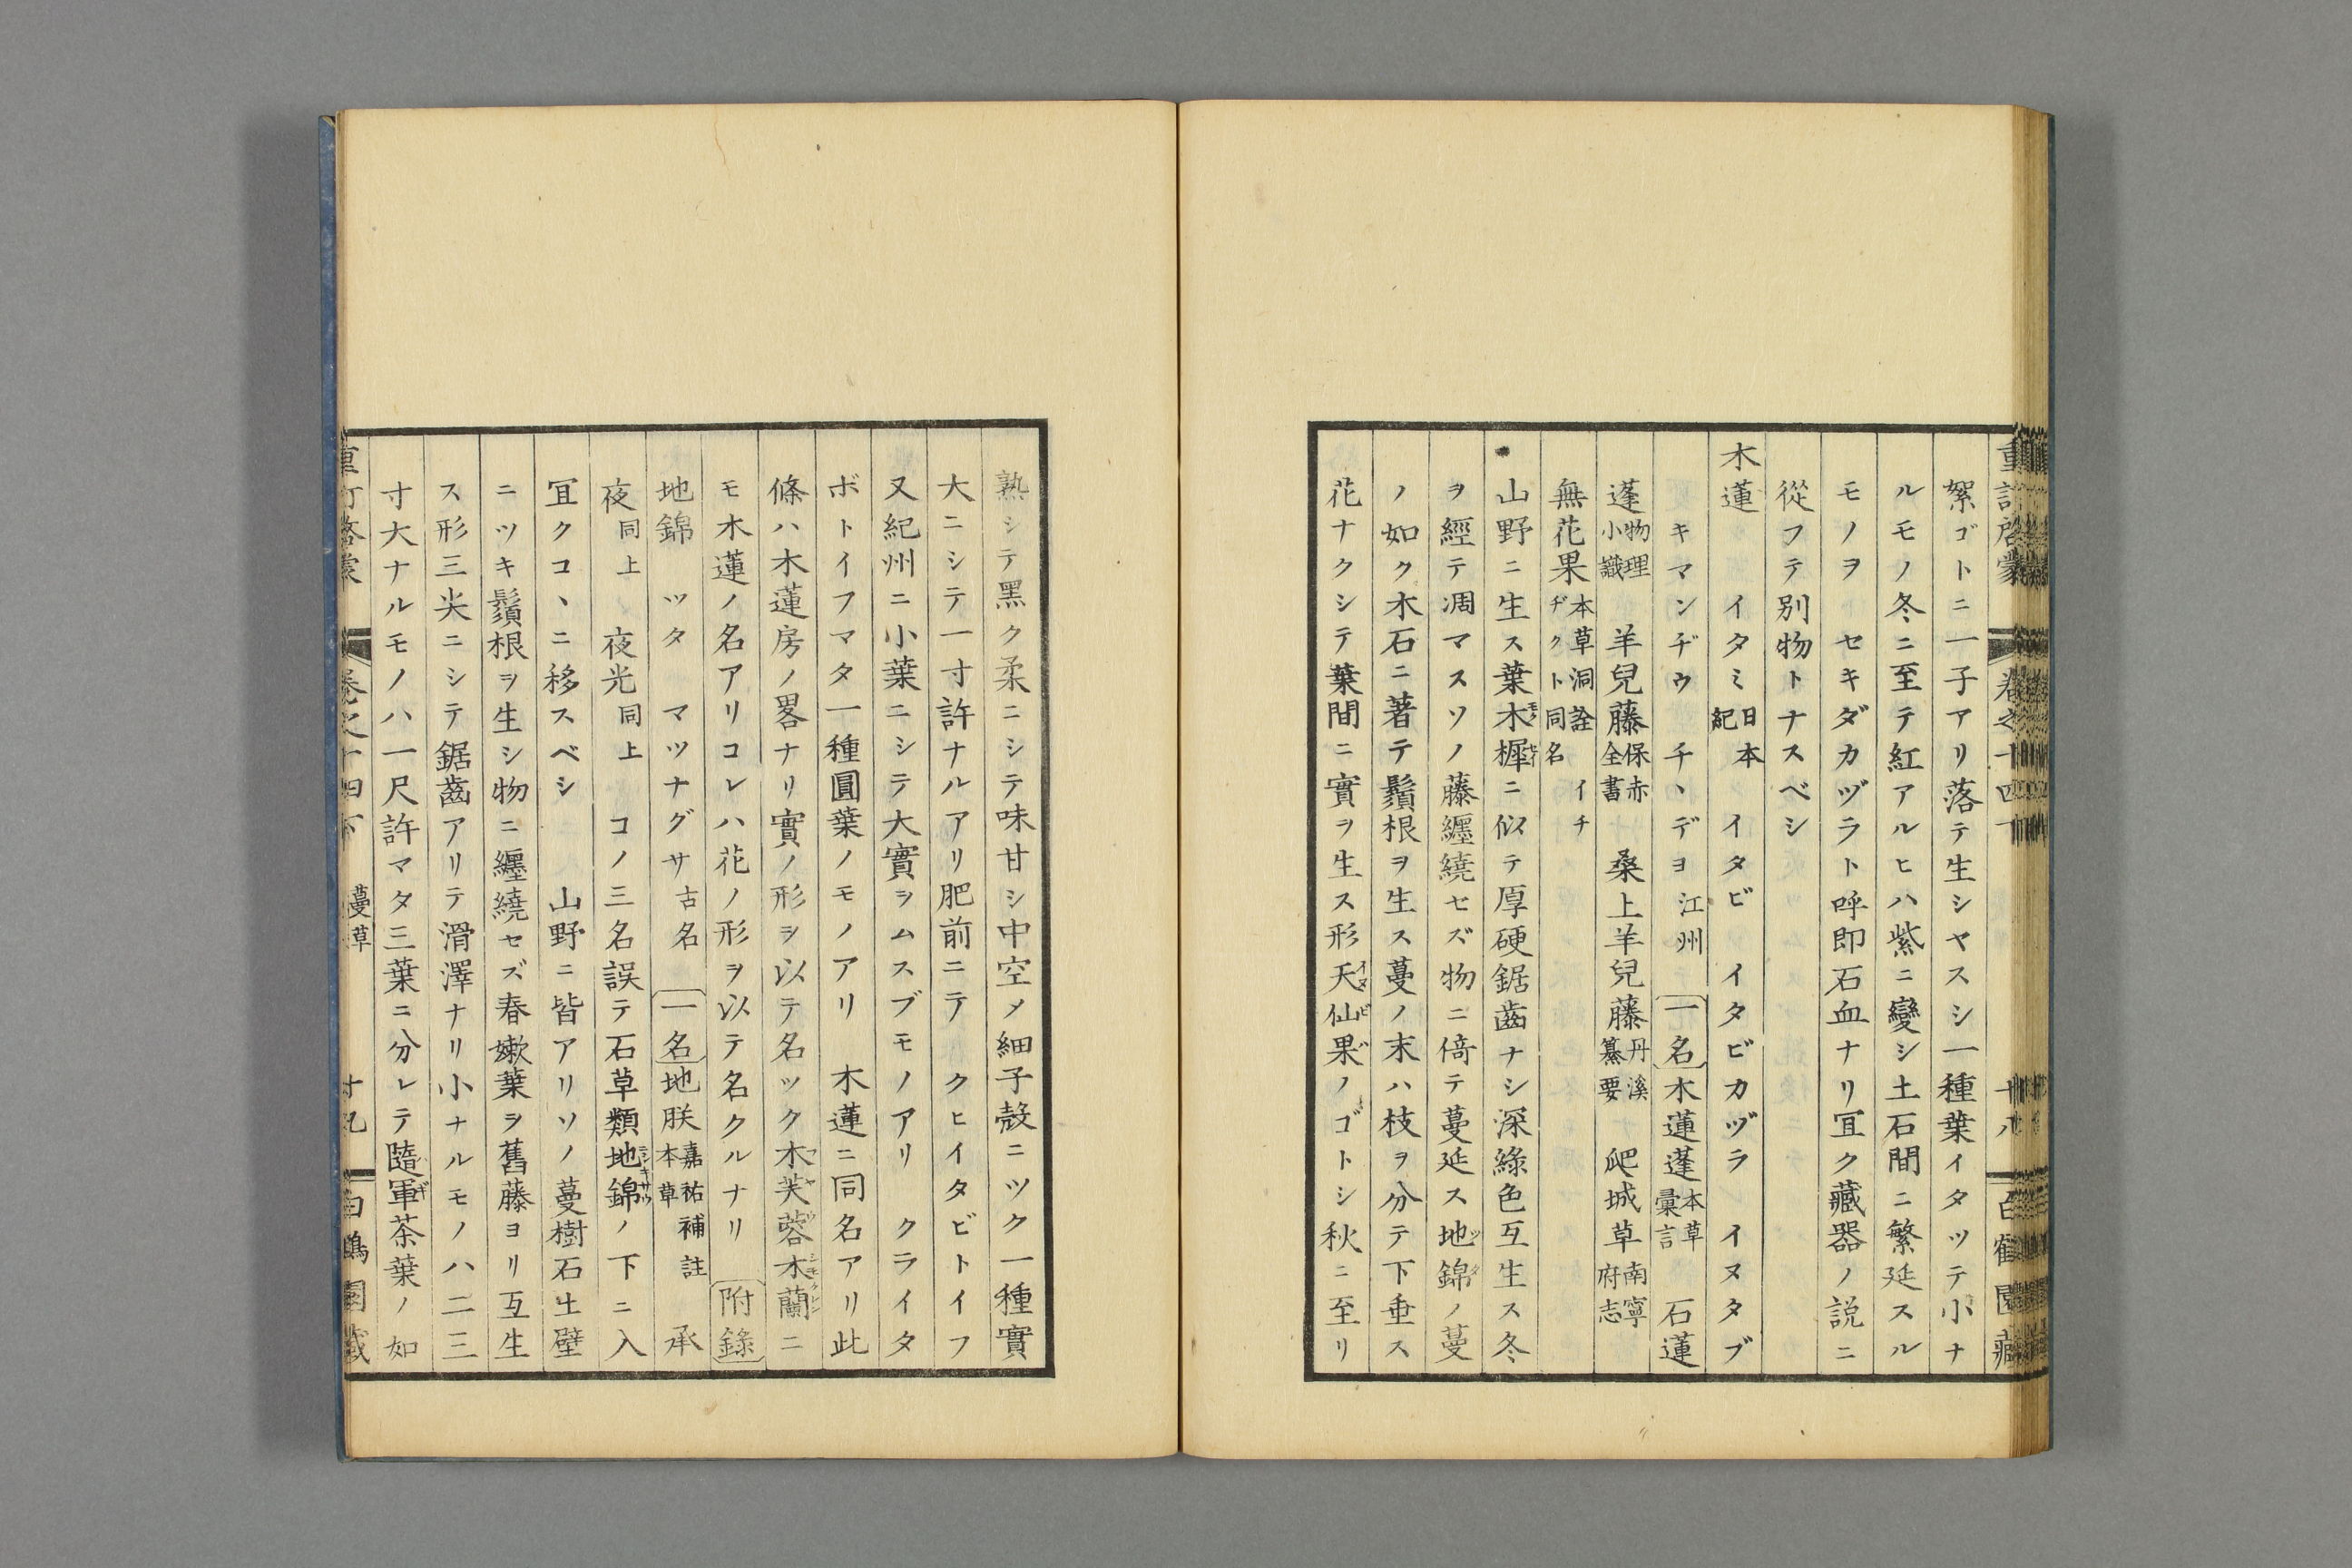 絮ゴトニ一子アリ落テ生シヤスシ一種葉イタツテ小ナ
ルモノ冬ニ至テ紅アルヒハ紫ニ變シ土石間ニ繁延スル
モノヲ セキダカヅラト呼即石血ナリ冝ク藏器ノ説ニ
從フテ別物トナスベシ
木蓮 イタミ日本紀 イタビ イタビカヅラ イヌタブ
キマンヂウ チヽデヨ江州 一名木蓮蓬本草彙言 石蓮
蓬物理小識 羊兒藤保赤全書 桑上羊兒藤丹溪纂要 爬城草南寧府志
無花果本草洞詮イチヂクト同名
山野ニ生ス葉木犀モクセイニ似テ厚硬鋸齒ナシ深綠色互生ス冬
ヲ經テ凋マスソノ藤纒繞セズ物ニ倚テ蔓延ス地錦ツタノ蔓
ノ如ク木石ニ著テ鬚根ヲ生ス蔓ノ末ハ枝ヲ分テ下垂ス
花ナクシテ葉間ニ實ヲ生ス形天仙果イヌビハノゴトシ秋ニ至リ
熟シテ黑ク柔ニシテ味甘シ中空〆細子殻ニツク一種實
大ニシテ一寸許ナルアリ肥前ニテ クヒイタビトイフ
又紀州ニ小葉ニシテ大實ヲムスブモノアリ クライタ
ボトイフマタ一種圓葉ノモノアリ 木蓮ニ同名アリ此
條ハ木蓮房ノ畧ナリ實ノ形ヲ以テ名ツク木芙蓉木蘭ニ
モ木蓮ノ名アリコレハ花ノ形ヲ以テ名クルナリ 附錄
地錦 ツタ マツナグサ古名 一名地朕嘉祐補註本草 承
夜同上 夜光同上 コノ三名誤テ石草類地錦ニシキサウノ下ニ入
冝クコヽニ移スベシ 山野ニ皆アリソノ蔓樹石土壁
ニツキ鬚根ヲ生シ物ニ纒繞セズ春嫩葉ヲ舊藤ヨリ互生
ス形三尖ニシテ鋸齒アリテ滑澤ナリ小ナルモノハ二三
寸大ナルモノハ一尺許マタ三葉ニ分レテ隨軍茶葉ノ如
蔓草